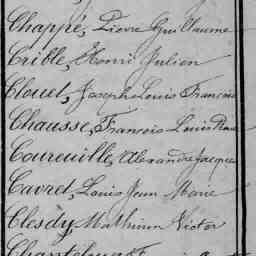 Chappé, Pierre Guillaume
Crible, Henri Julien
Clouet, Joseph Louis Francois
Chausse, François Louis
Coureuille, Alexandre Jacques
Cavret, Louis Jean Marie
Clesdy, Mathurin Victor